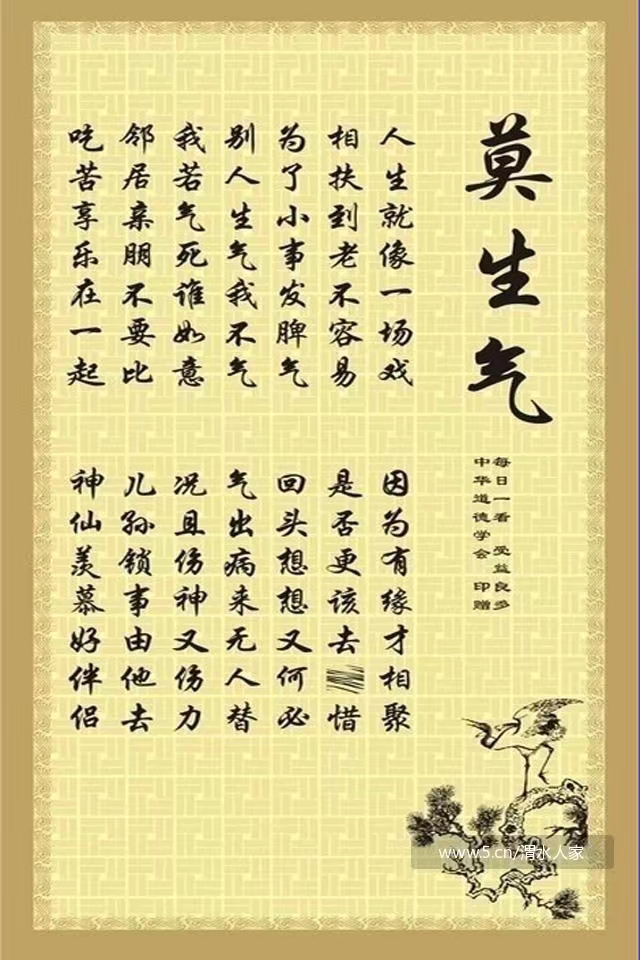 莫生气
每日一看 受益良多
中华道德学会 印赠
人生就像一场戏 因为有缘才相聚
相扶到老不容易 是否更该去惜
为了小事发脾气 回头想想又何必
别人生气我不气 气出病来无人替
我若气死谁如意 况且伤神又伤力
邻居亲朋不要比 儿孙锁事由他去
吃苦享乐在一起 神仙羡慕好伴侣
www.5.cn/渭水人家